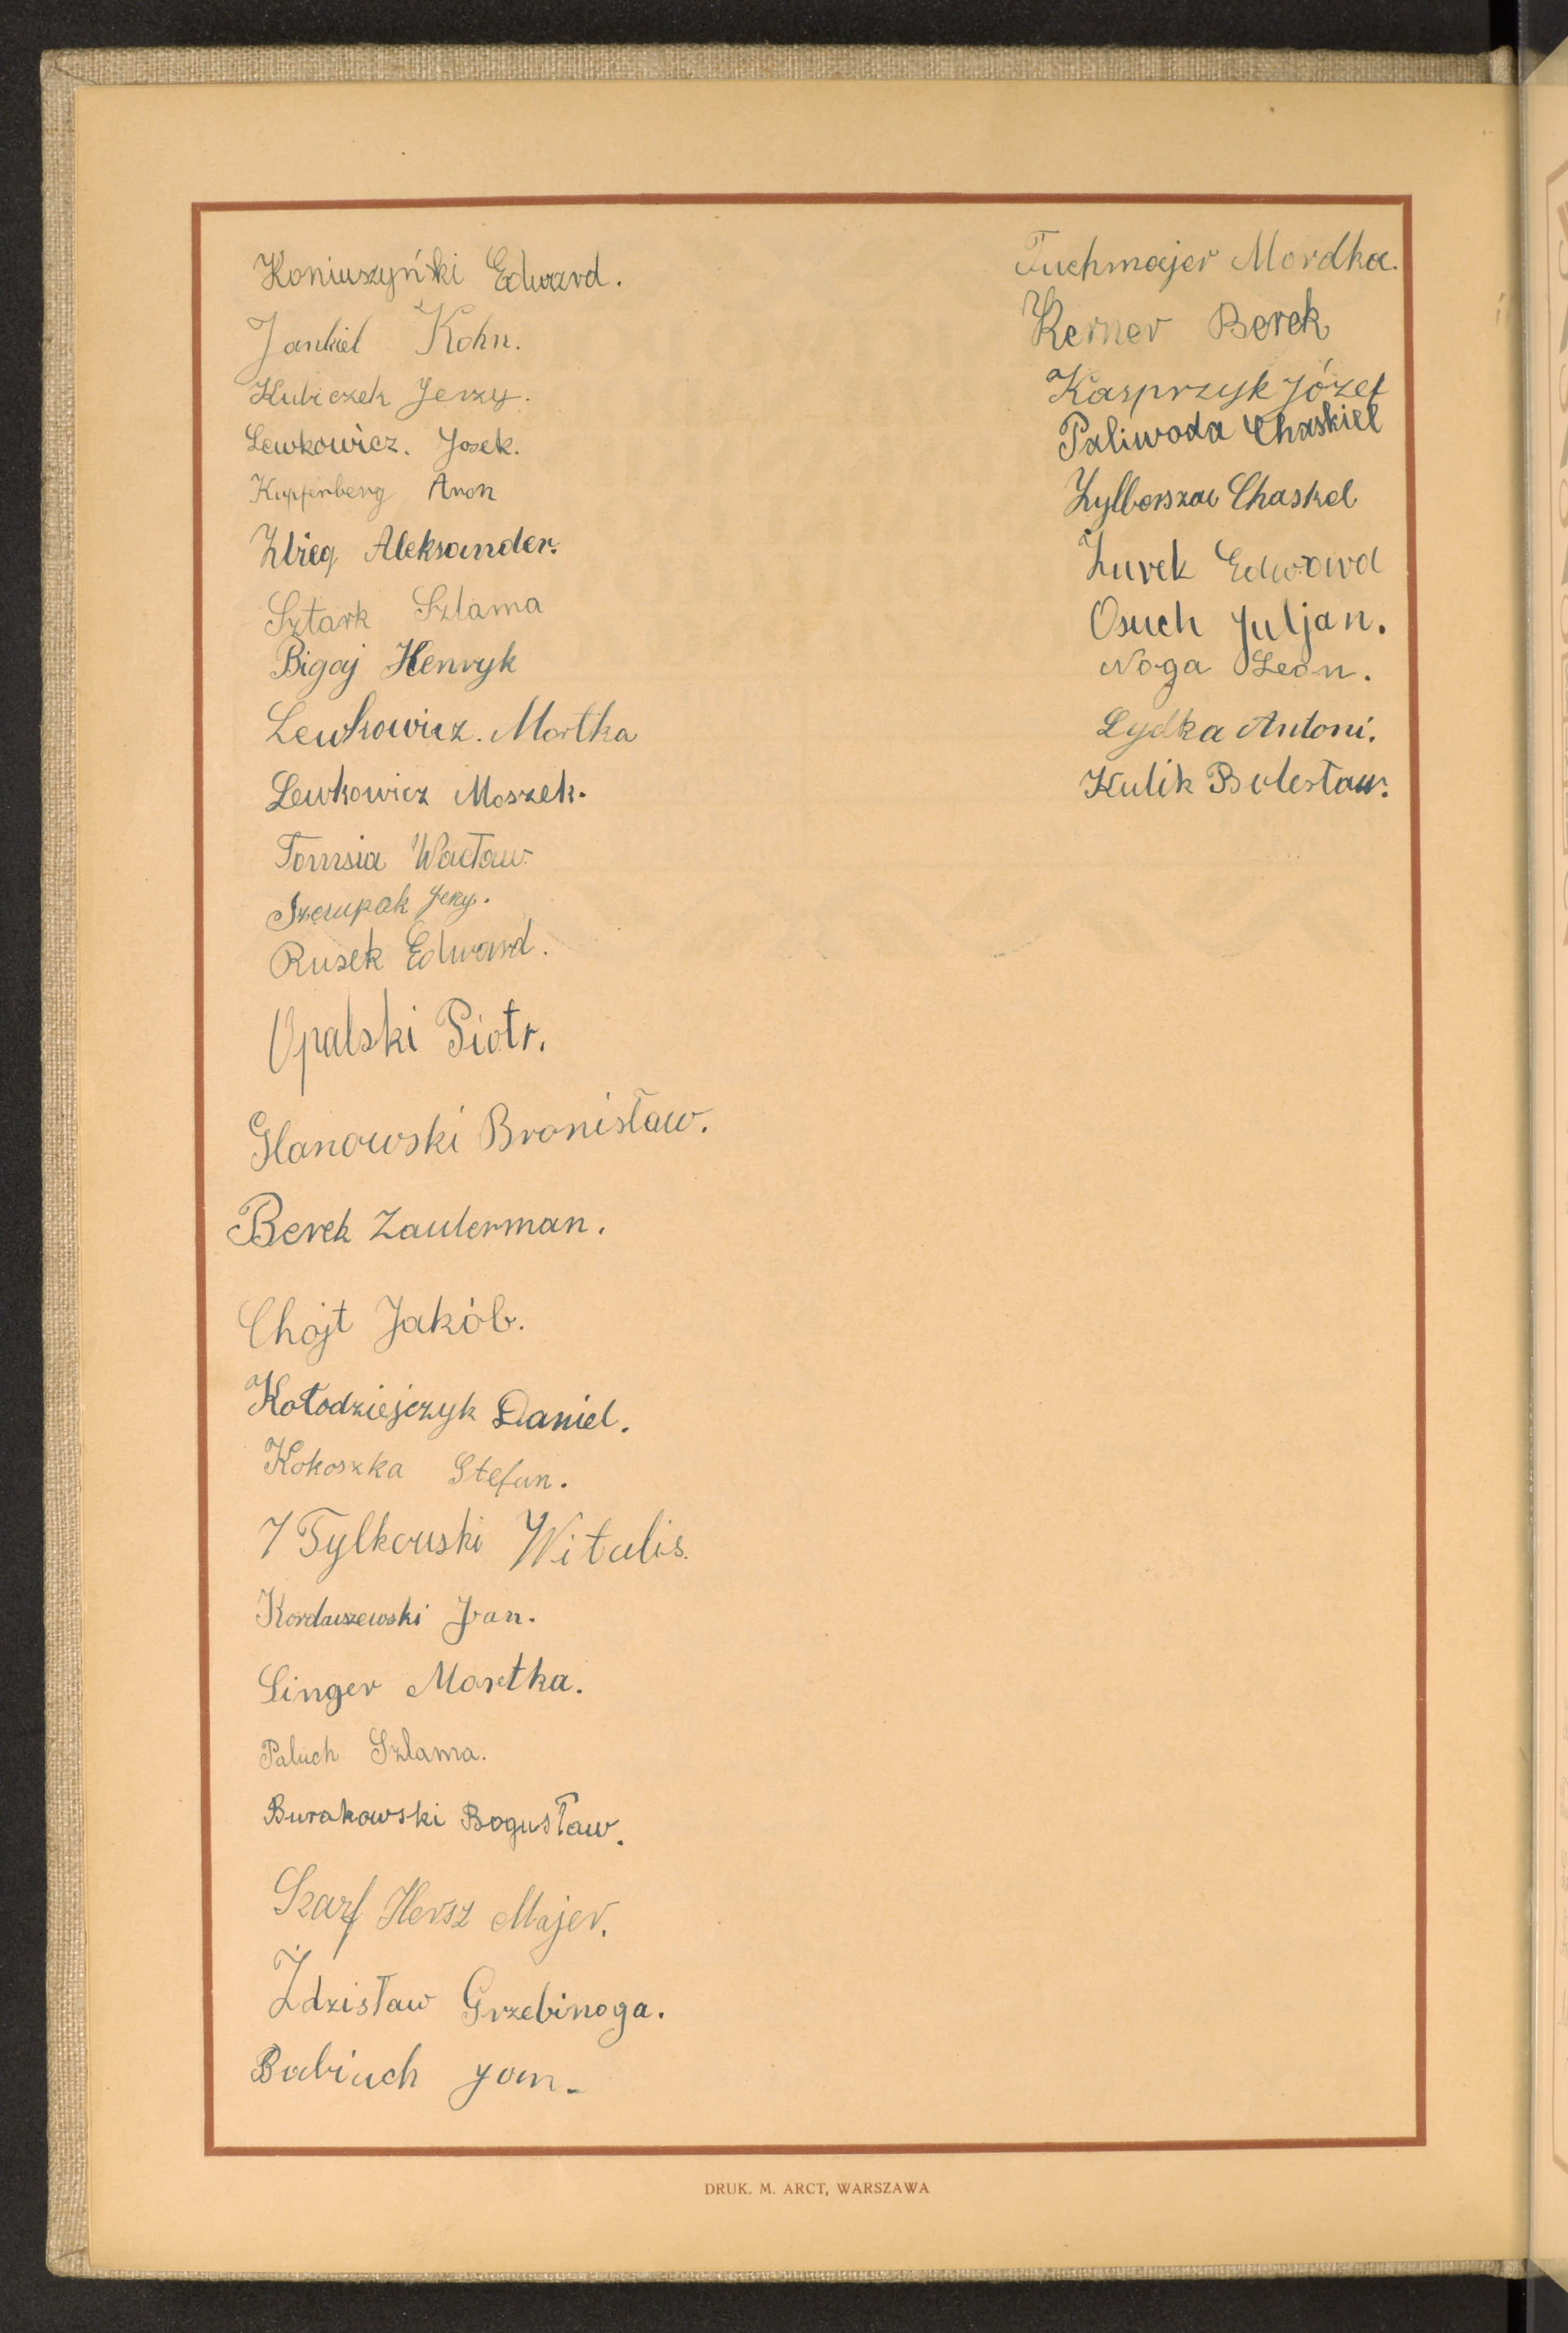 Koniuszyński Edward.
Jankiel Kohn.
Kubiczek Jerzy.
Lewkowicz. Josek.
Kupferberg Aron
Zbieg Aleksander.
Sztark Szlama
Bigaj Henryk
Lewkowicz. Mortka
Lewkowicz Moszek.
Tomsia Wacław
Szczupak Jerzy.
Rusek Edward.
Opalski Piotr.
Glanowski Bronisław.
Berek Zauderman.
Chojt Jakób.
Kołodziejczyk Daniel.
Kokoszka Stefan.
Tylkowski Witalis.
Kordaszewski Jan.
Singer Mortka.
Paluch Szlama.
Burakowski Bogusław.
Szarf Hersz Majer.
Żdzisław Grzebinoga.
Babiuch Jan.
Tuchmajer Mordka.
Kerner Berek
Kasprzyk Józef
Paliwoda Chaskiel
Zylberszac Chaskel
Żurek Edward
Osuch Juljan.
Noga Leon.
Lydka Antoni.
Kulik Bolesław.
DRUK. M. ARCT, WARSZAWA